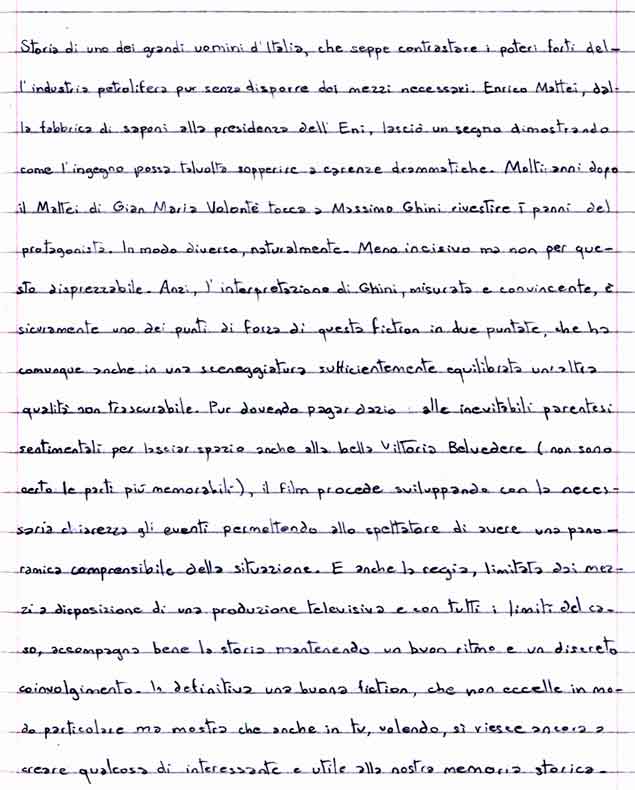 Storia di uno dei grandi uomini d'Italia, che seppe contrastare i poteri forti del-
l'industria petrolifera pur senza disporre dei mezzi necessari. Enrico Mattei, dal-
la fabbrica di saponi alla presidenza dell'Eni, lasciò un segno dimostrando
come l'ingegno possa talvolta sopperire a carenze drammatiche. Molti anni dopo
il Mattei di Gian Maria Volontè tocca a Massimo Ghini rivestire i panni del
protagonista. In modo diverso, naturalmente. Meno incisivo ma non per que-
sto disprezzabile. Anzi, l'interpretazione di Ghini, misurata e convincente, è
sicuramente uno dei punti di forza di questa fiction in due puntate, che ha
comunque anche in una sceneggiatura sufficientemente equilibrata un'altra
qualità non trascurabile. Pur dovendo pagar dazio alle inevitabili parentesi
sentimentali per lasciar spazio anche alla bella Vittoria Belvedere (non sono
certo le parti più memorabili), il film procede sviluppando con la neces-
saria chiarezza gli eventi permettendo allo spettatore di avere una pano-
ramica comprensibile della situazione. E anche la regia, limitata dai mez-
zi a disposizione di una produzione televisiva e con tutti i limiti del ca-
so, accompagna bene la storia mantenendo un buon ritmo e un discreto
coinvolgimento. In definitiva una buona fiction, che non eccelle in mo-
do particolare ma mostra che anche in tv, volendo, si riesce ancora a
creare qualcosa di interessante e utile alla nostra memoria storica.